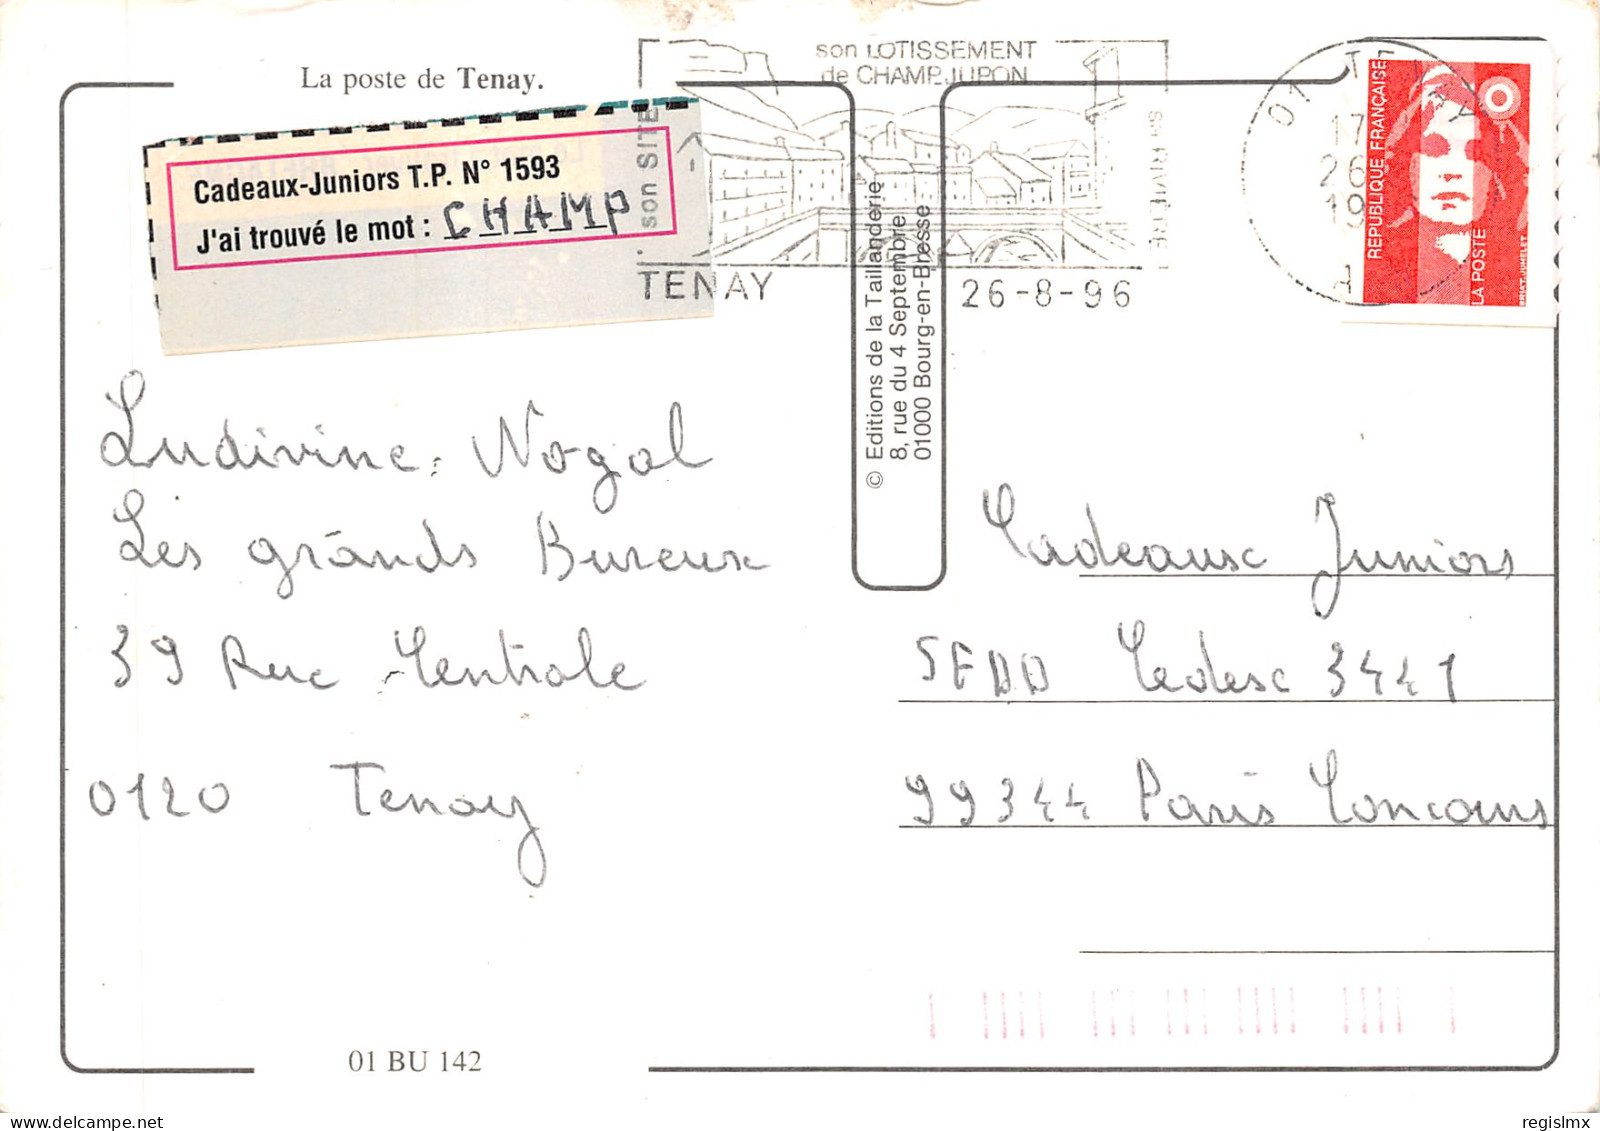 La poste de Tenay.
Cadeaux-Juniors T.P. N° 1593
J'ai trouvé le mot : CHAMP
son SITE
son LOTISSEMENT
de CHAMPJUPON
sa RIVIERE
TENAY
26-8-96
01 TENAY
17
26
19
A
REPUBLIQUE FRANÇAISE
LA POSTE
BRIAT-JUMELET
© Editions de la Taillanderie
8, rue du 4 Septembre
01000 Bourg-en-Bresse
Ludivine Nogal
Les grands Bureux
39 Rue Centrale
0120 Tenay
Cadeaux Juniors
Cedex 3441
99344 Paris Concours
01 BU 142
regislmx